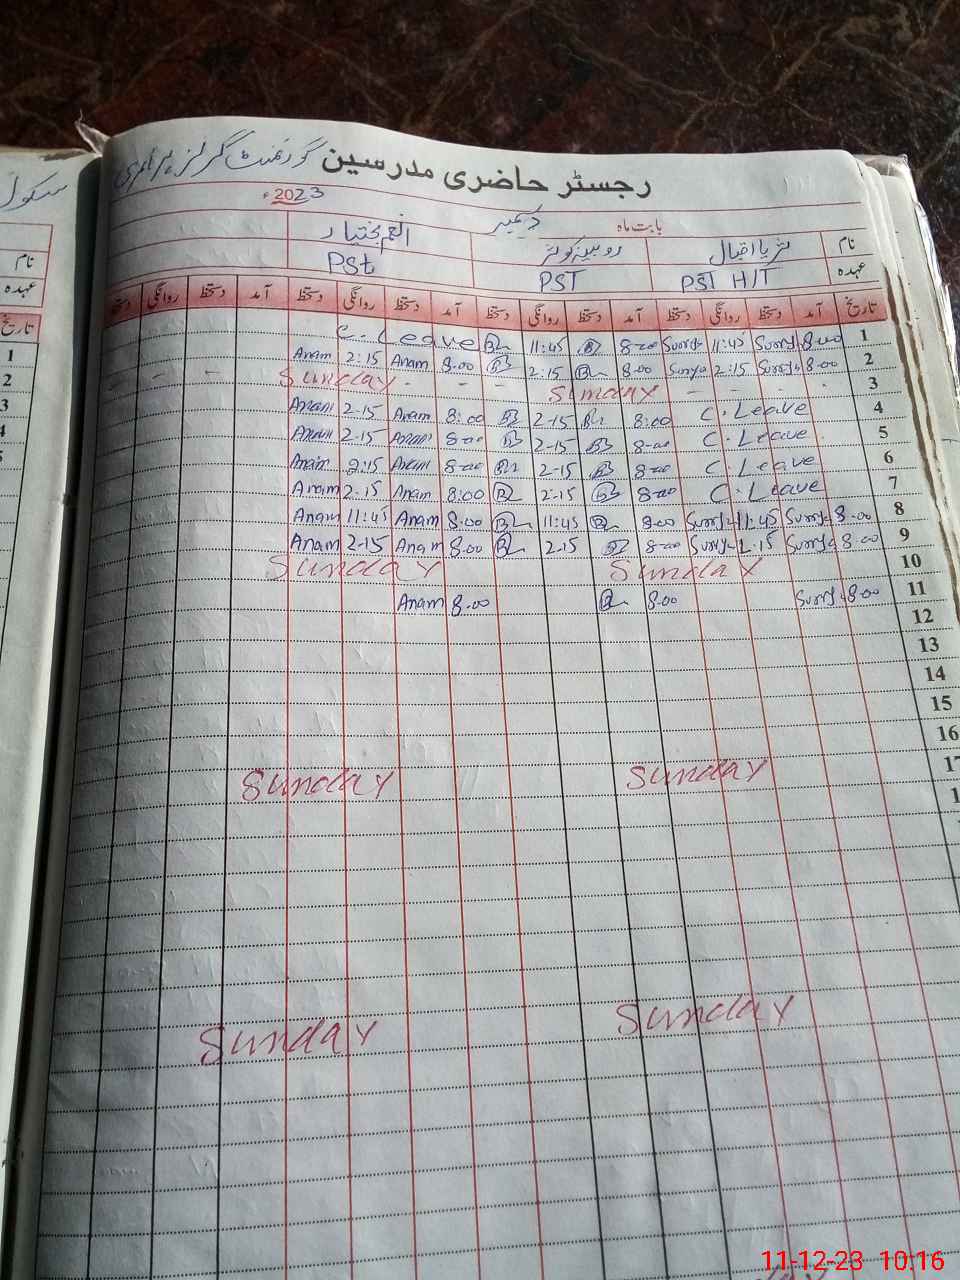 رجسٹر حاضری مدرسین گورنمنٹ گرلز پرائمری
سکول
2023ء
بابت ماہ دسمبر
نام ثریا اقبال روبینہ کوثر انعم بختیار
عہدہ PST H/T PST PSt
تاریخ آمد دستخط روانگی دستخط آمد دستخط روانگی دستخط آمد دستخط روانگی دستخط آمد دستخط روانگی دستخط
نام
عہدہ
تاریخ
C. Leave 11:45 8-00 11:45 8-00 1
Anam 2:15 Anam 8.00 2:15 8-00 2:15 8-00 2
Sunday - - - Sunday 3
Anam 2-15 Anam 8:00 2-15 8:00 C. Leave 4
Anam 2-15 Anam 8-00 2-15 8-00 C. Leave 5
Anam 2:15 Anam 8-00 2-15 8-00 C. Leave 6
Anam 2.15 Anam 8:00 2-15 8-00 C. Leave 7
Anam 11:45 Anam 8.00 11:45 8-00 11:45 8-00 8
Anam 2-15 Anam 8.00 2.15 8-00 2.15 8.00 9
Sunday Sunday 10
Anam 8.00 8.00 8-00 11
12
13
14
15
16
Sunday Sunday 17
Sunday Sunday
1
2
3
4
11-12-23 10:16